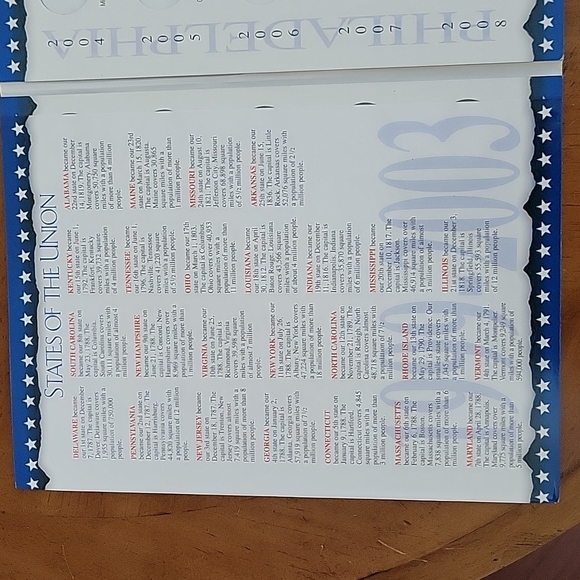 STATES OF THE UNION
DELAWARE became
our 1st state on December
7, 1787. The capital is
Dover. Delaware covers
1,955 square miles with a
population of 750,000
people.
PENNSYLVANIA
became our 2nd state on
December 12, 1787. The
capital is Harrisburg.
Pennsylvania covers
44,820 square miles with
a population of 12 million
people.
NEW JERSEY became
our 3rd state on
December 18, 1787. The
capital is Trenton. New
Jersey covers
7,419 square miles with a
population of more than 8
million people.
GEORGIA became our
4th state on January 2,
1788. The capital is
Atlanta. Georgia covers
57,919 square miles with
a population of
8 million people.
CONNECTICUT
became our 5th state on
January 9, 1788. The
capital is Hartford.
Connecticut covers 4,845
square miles with a
population of more than
3 million people.
MASSACHUSETTS
became our 6th state on
February 6, 1788. The
capital is Boston.
Massachusetts covers
7,838 square miles with a
population of more than 6
million people.
MARYLAND became our
7th state on April 28, 1788.
The capital is Annapolis.
Maryland covers over
9,775 square miles with a
population of more than
5 million people.
SOUTH CAROLINA
became our 8th state on
May 23, 1788. The
capital is Columbia.
South Carolina covers
30,111 square miles with
a population of almost 4
million people.
NEW HAMPSHIRE
became our 9th state on
June 21, 1788. The
capital is Concord. New
Hampshire covers over
8,969 square miles with a
population of more than
1 million people.
VIRGINIA became our
10th state on June 25,
1788. The capital is
Richmond. Virginia
covers 39,598 square
miles with a population
of almost 7
million people.
NEW YORK became our
11th state on July 26,
1788. The capital is
Albany. New York covers
47,224 square miles with
a population of more than
18 million people.
NORTH CAROLINA
became our 12th state on
November 21, 1789. The
capital is Raleigh. North
Carolina covers almost
48,718 square miles with
a population of 7 ½
million people.
RHODE ISLAND
became our 13th state on
May 29, 1790. The
capital is Providence. Our
smallest state covers
1,045 square miles with a
population of more than
1 million people.
VERMONT became our
14th state on March 4, 1791.
The capital is Montpelier.
Vermont covers 9,249 square
miles with a population of
594,000 people.
KENTUCKY became
our 15th state on June 1,
1792. The capital is
Frankfort. Kentucky
covers 39,732 square
miles with a population
of 4 million people.
TENNESSEE became
our 16th state on June 1,
1796. The capital is
Nashville. Tennessee
covers 41,220 square
miles with a population
of 5½ million people.
OHIO became our 17th
state on March 1, 1803.
The capital is Columbus.
Ohio covers 40,953
square miles with a
population of more than
11 million people.
LOUISIANA became
our 18th state on April
30, 1812. The capital is
Baton Rouge. Louisiana
covers 43,566 square
miles with a population
of about 4 million people.
INDIANA became our
19th state on December
11, 1816. The capital is
Indianapolis. Indiana
covers 35,870 square
miles with a population
of 6 million people.
MISSISSIPPI became
our 20th state on
December 10, 1817. The
capital is Jackson.
Mississippi covers over
46,914 square miles with
a population of almost
3 million people.
ILLINOIS became our
21st state on December 3,
1818. The capital is
Springfield. Illinois
covers 55,593 square
miles with a population
of 12 million people.
ALABAMA became our
22nd state on December
14, 1819. The capital is
Montgomery. Alabama
covers 50,750 square
miles with a population
of more than 4 million
people.
MAINE became our 23rd
state on March 15, 1820.
The capital is Augusta.
Maine covers 30,865
square miles with a
population of more than
1 million people.
MISSOURI became our
24th state on August 10,
1821. The capital is
Jefferson City. Missouri
covers 68,898 square
miles with a population
of 5 ½ million people.
ARKANSAS became our
25th state on June 15,
1836. The capital is Little
Rock. Arkansas covers
52,076 square miles with
a population of 2 ½
million people.
PHILADELPHIA
2004
2005
2006
2007
2008